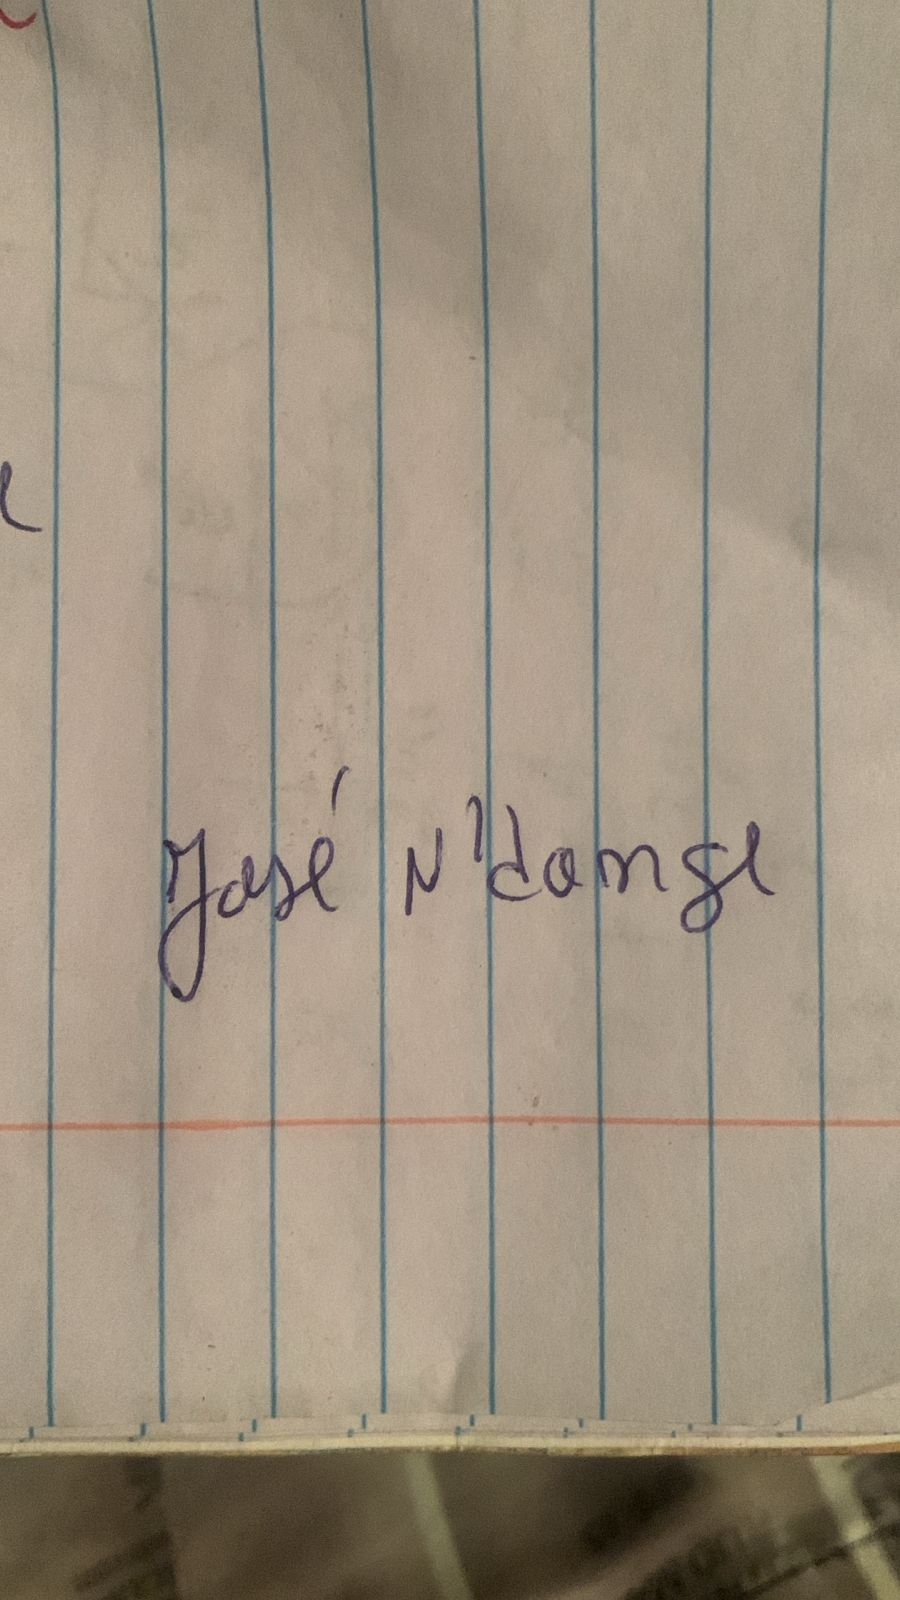 José N'dange